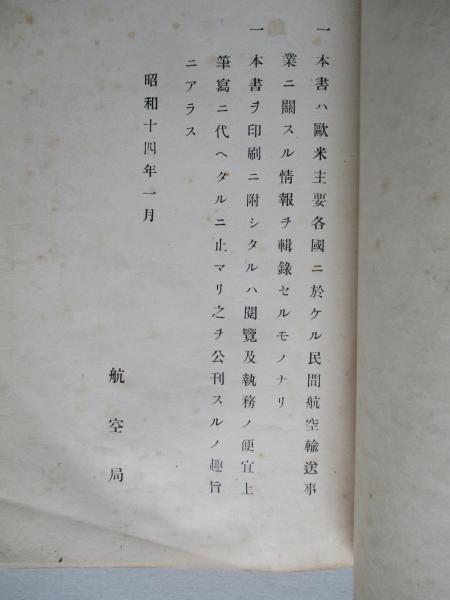 一 本書ハ歐米主要各國ニ於ケル民間航空輸送事
業ニ關スル情報ヲ輯錄セルモノナリ
一 本書ヲ印刷ニ附シタルハ閲覽及執務ノ便宜上
筆寫ニ代ヘタルニ止マリ之ヲ公刊スルノ趣旨
ニアラス
昭和十四年一月
航空局